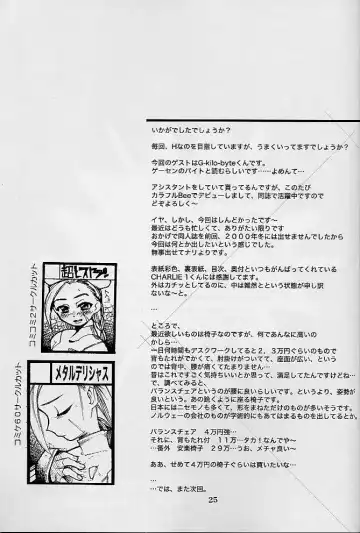 いかがでしたでしょうか?
毎回、Hなのを目指していますが、うまくいってますでしょうか?
今回のゲストはG-kilo-byteくんです。
ゲーセンのバイトと読むらしいです……よめんて…
アシスタントをしていて貰ってるんですが、このたび
カラフルBeeでデビューしまして、同誌で活躍中ですので
どぞよろしく〜
イヤ、しかし、今回はしんどかったです〜
最近はどうも忙しくて、ありがたい限りです
おかげで同人誌を前回、2000年冬には出せませんでしたから
今回は何とか出したいという感じでした。
無事出せてナリよりです。
表紙彩色、裏表紙、目次、奥付といつもがんばってくれている
CHARLIE1くんには感謝してます。
外はカチッとしてるのに、中は雑然という状態が申し訳
ないな〜と。
…
ところで、
最近欲しいものは椅子なのですが、何であんなに高いの
かしら…
一日何時間もデスクワークしてると2、3万円ぐらいのもので
背もたれがでかくて、肘掛けがついてて、座面が広い、という
のでは背中、腰が痛くてたまりません…
昔はこれですごく気持ちいいとか思って、満足してたんですけどね…
で、調べてみると、
バランスチェアというのが腰に良いらしいです。というより、姿勢が
良いという。あの跪くように座る椅子です。
日本にはニセモノも多くて、形をまねただけのものが多いそうです。
ノルウェーの会社のものが学術的にもあてはまるものを出してるとか
バランスチェア 4万円強…
それに、背もたれ付 11万…タカ!なんでや〜
…番外 安楽椅子 29万…うお、メチャ良い〜
ああ、せめて4万円の椅子ぐらいは買いたいな…
…
…では、また次回。
25
コミコミ2サークルカット
コミケ60サークルカット
メタルデリシャス